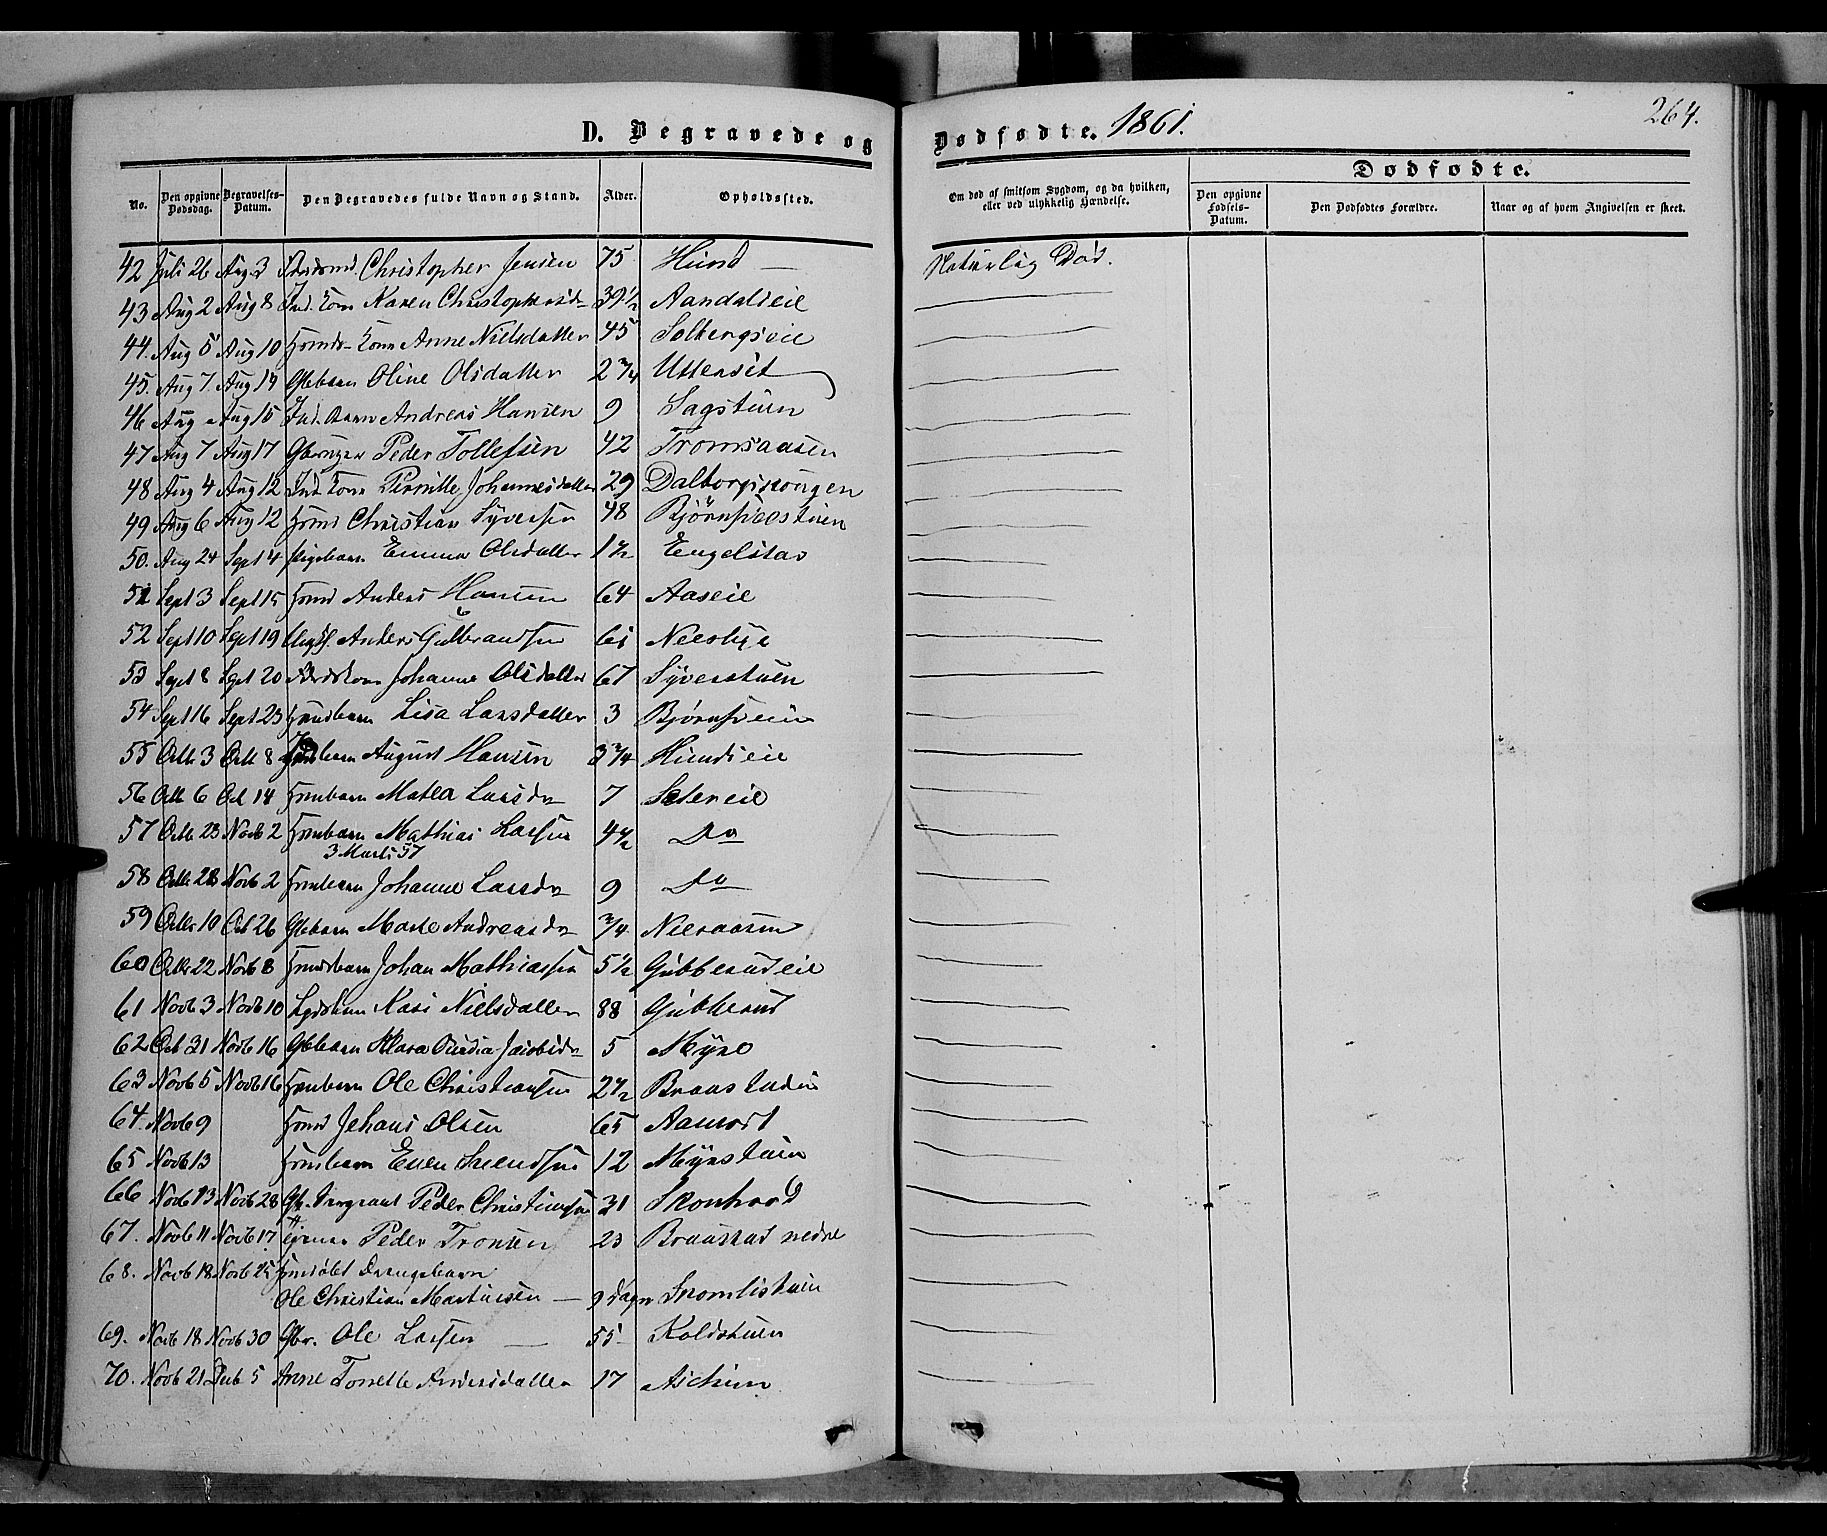 D. Begravede og Dødfødte. 1861. 264.
No. Den opgivne Dødsdag. Begravelses-Datum. Den Begravedes fulde Navn og Stand. Alder. Opholdssted. Om død af smitsom Sygdom, og da hvilken, eller ved ulykkelig Hændelse. Dødfødte. Den opgivne Fødsels-Datum. Den Dødfødtes Forældre. Naar og af hvem Angivelsen er skeet.
42 Juli 26 Aug 3 Christopher Jensen 75 Hund — Naturlig Død.
43 Aug 2 Aug 8 Ind. Kone Karen Christophersdr 39 1/2 Aandalseie
44. Aug 5 Aug 10 Hmds Kone Anne Nielsdatter 45 Solbergseie
45. Aug 7. Aug 14 Gbbarn Oline Olsdatter 2 3/4
46 Aug Aug 15 Ind. Barn Andreas Hansen 9 Sagstuen
47 Aug 7 Aug 17 Peder Tollefsen 42 Tromsaasen
48 Aug 4 Aug 12 Ind Kone Pernille Johannesdatter 29
49 Aug 6 Aug 12 Hmd Christian Syversen 48
50. Aug 24 Sept 4 Pigebarn Emma Olsdatter 1 1/2 Engelstad
51 Sept 3 Sept 15 Hmd Anders Hansen 64 Aaseie
52 Sept 10 Sept 19 Anders Gulbrandsen 61
53 Sept 8 Sept 20 Johanne Olsdatter 67 Syverstuen
54 Sept 16 Sept 23 Hmdbarn Lisa Larsdatter 3
55 Octb 3 Octb 8 barn August Hansen 3 3/4 Hundseie
56 Octb 6 Oct 14 Hmbarn Mathea Larsdr 7 Setereie
57 Octb 23 Novb 2 Hmbarn Mathias Larsen 4 1/2 Do
3 Marts 57
58 Octb 28 Novb 2 Hmbarn Johanne Larsdr 9 Do
59 Octbr 10 Oct 26 Gbbarn Marte Andreasdr 3/4
60 Octb 22 Novb 8 Hmdsbarn Johan Mathiassen 5 1/2 Gubberudeie
61 Novb 3 Novb 10 Kari Nielsdatter 88 Gubberud
62 Oct 31 Novb 16 Gbbarn Jacobsdr 5 Myre
63 Novb 5 Novb 16 Hmbarn Ole Christiansen 2 1/2
64. Novb 9 Hmd Johans Olsen 65
65 Novb 13 Hmbarn Even Svendsen 12 Myrstuen
66 Novb 13 Novb 28 Peder Christiansen 31
67. Novb 11 Novb 17 Peder Tronsen 23 Braastad nedre
68. Novb 18 Novb 25 Drengebarn
Ole Christian Martinsen — 9 Dage
69. Novb 18 Novb 30 Gbr. Ole Larsen — 55 Koldstuen
70. Novb 21 Decb 5 Anne Tonette Andersdatter 17